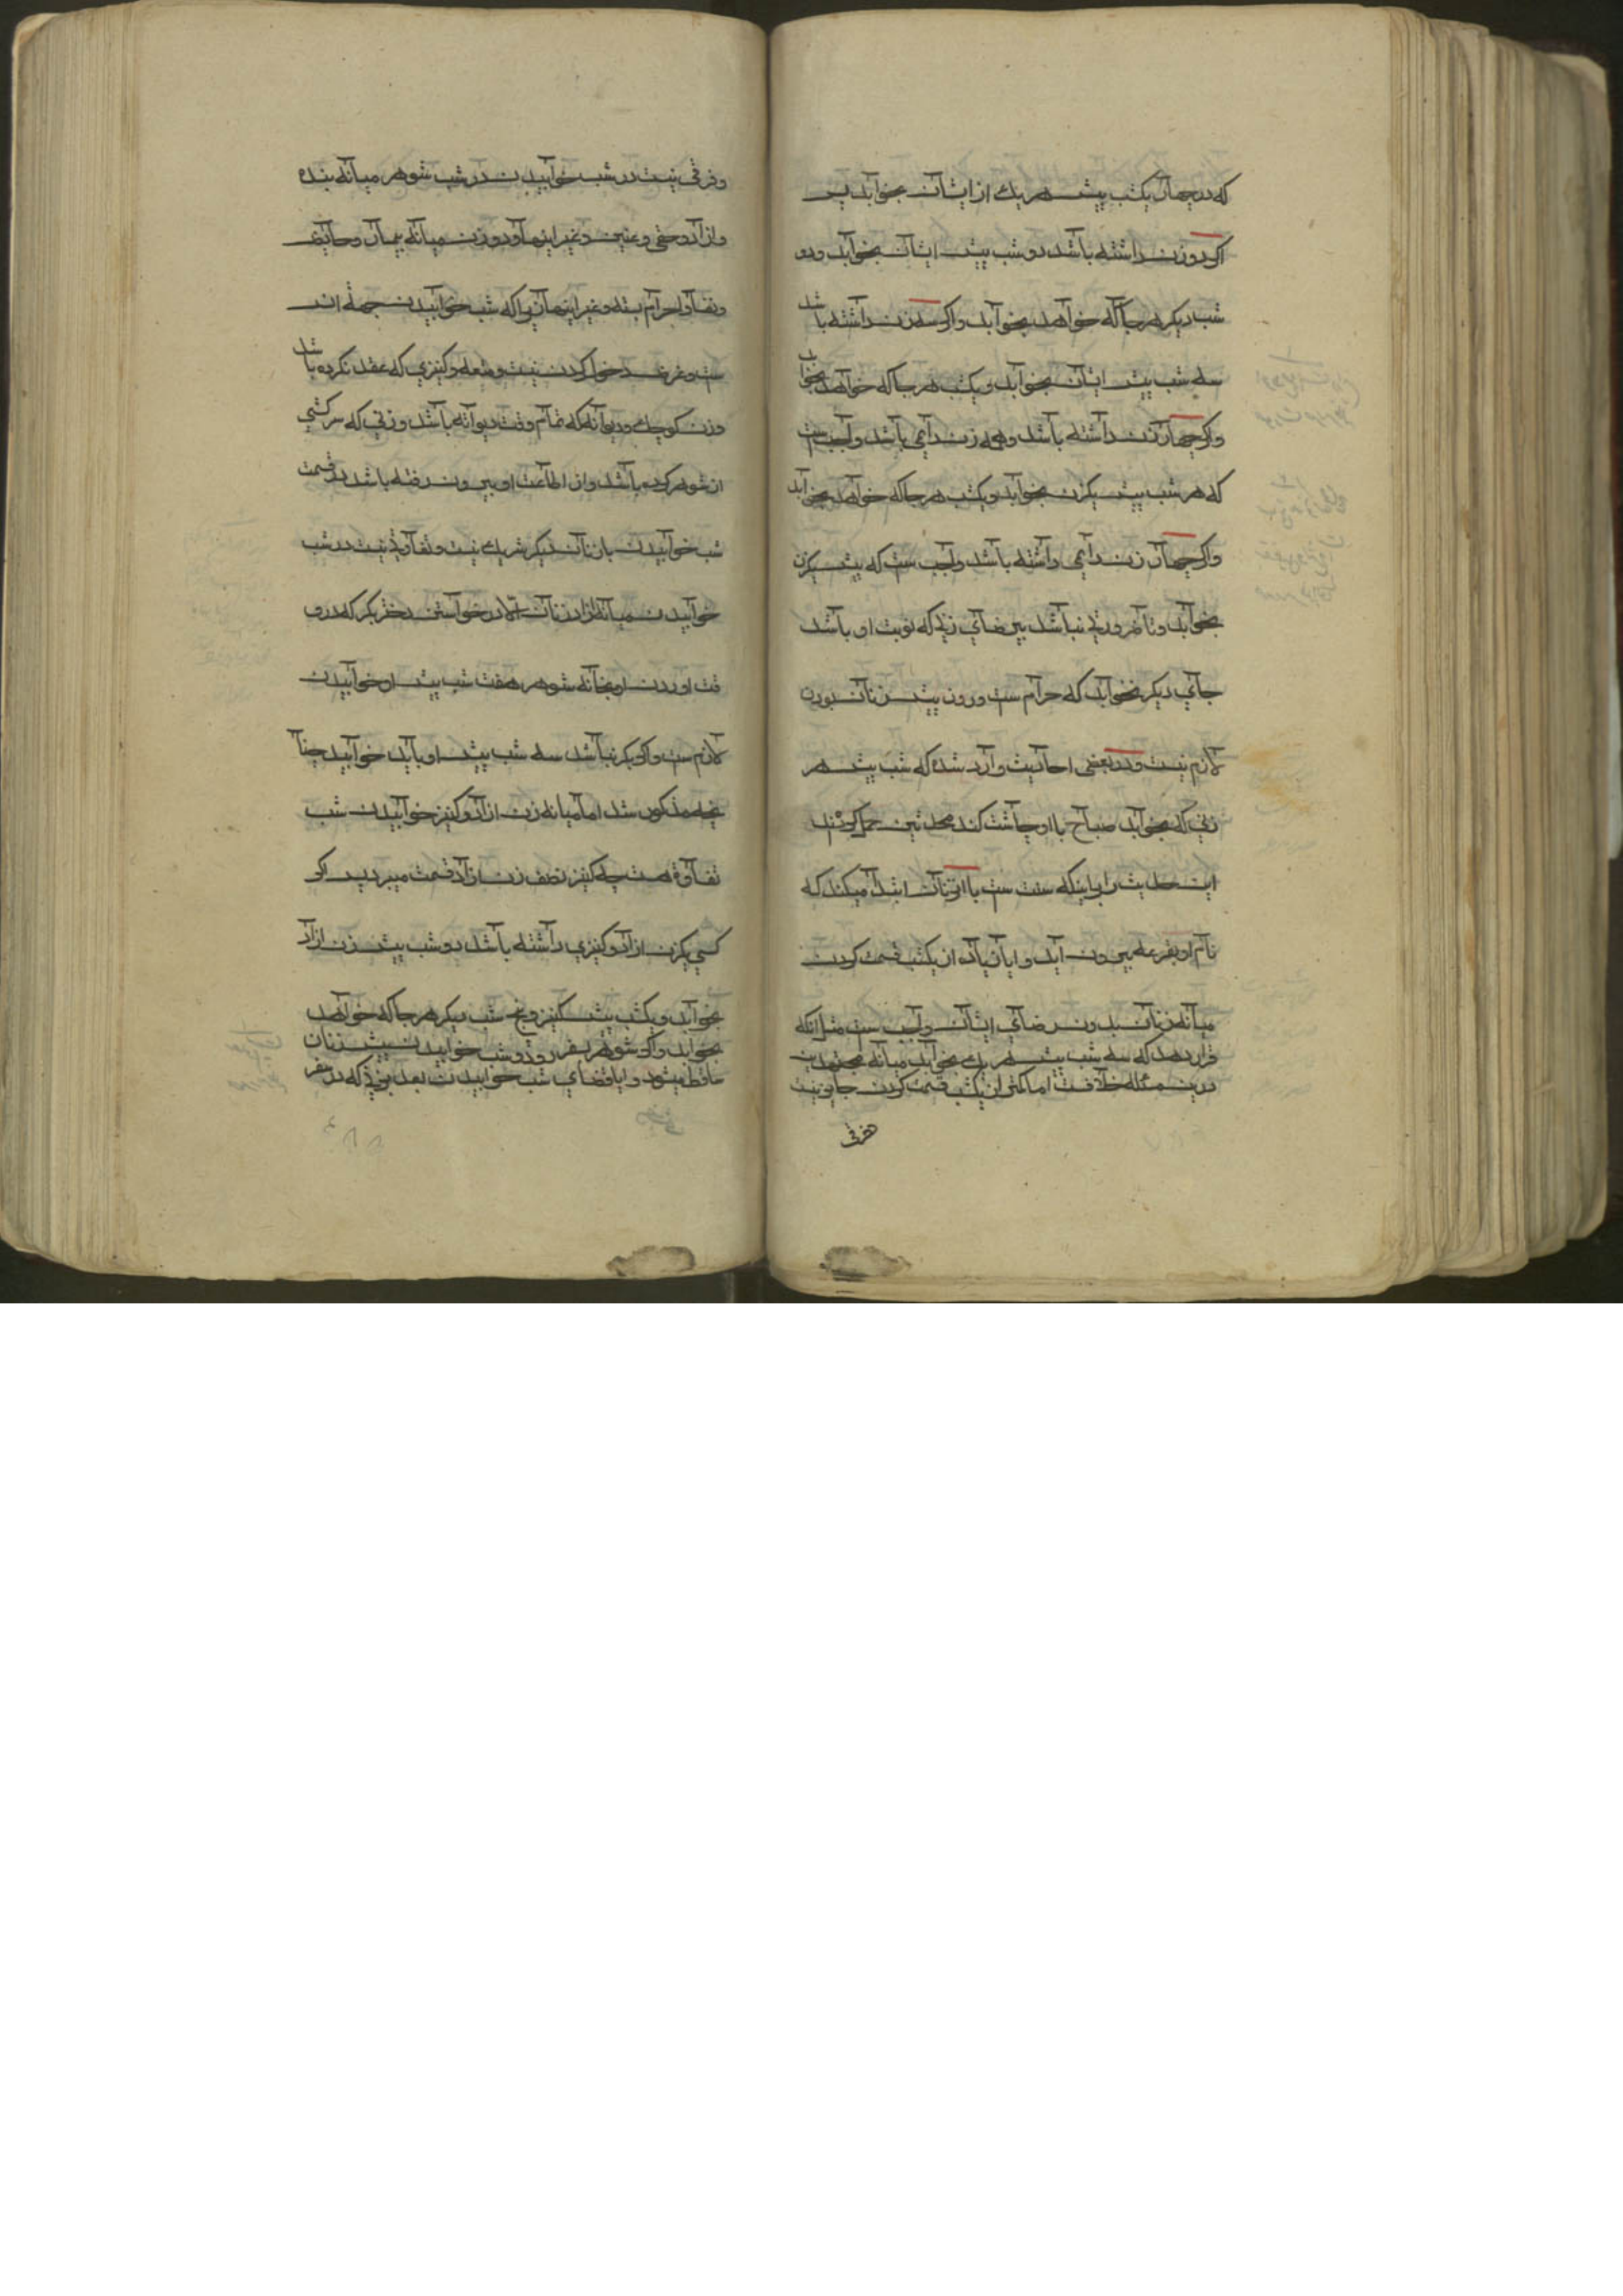 که در چهار یکشب پیش هر یك از ایشان بخوابد پس
اگر دو زن داشته باشد دو شب پیش ایشان بخوابد ودو
شب دیگر هر جا که خواهد بخوابد واگر سه زن داشته باشد
سه شب پیش ایشان بخوابد ویکشب هر جا که خواهد بخوابد
واگر چهار زن داشته باشد وهمه زن دایمی باشد واجب ست
که هر شب پیش یکزن بخوابد ویکشب هر جا که خواهد بخوابد
واگر چهار زن دایمی داشته باشد واجب ست که پیش یکزن
بخوابد وتا ضرورتی نباشد بی رضای زنی که نوبت او باشد
جای دیگر نخوابد که حرام ست وروز پیش زنان بودن
لازم نیست ودر بعضی احادیث وارد شده که شب پیش هر
زنی که بخوابد صباح با او چاشت کند مجتهدین حمل کردند
این حدیث را براینکه سنت ست با او زنان ابتدا میکند که
نام او بقرعه بیرون آید وایا زیاده از یکشب قسمت کردن
میانه زنان بدون رضای ایشان واجب ست مثل انکه
قرار دهد که سه شب پیش هر یك بخوابد میانه مجتهدین
درین مسئله خلافست اما کمتر از یکشب قسمت کردن جایز نیست
وفرقی نیست در شب خوابیدن در شب شوهر میانه بنده
وازاد وخصی وعنین وغیر اینها ودر زن میانه بیمار وحایض
ونفسا واحرام بسته وغیر اینها زیرا که شب خوابیدن جهة انس
ست وغرض دخول کردن نیست ومتعه وکنیزی که عقد نکرده باشد
وزن کوچك ودیوانه که تمام وقت دیوانه باشد وزنی که سرکشی
از شوهر کرده باشد واز اطاعت او بیرون رفته باشد در قسمت
شب خوابیدن با زنان دیگر شریك نیست وتفاوتی نیست در شب
خوابیدن میانه ازاد زنان الا در خواستن دختر بکر که در وقت
اوردن او بخانه شوهر هفت شب پیش او خوابیدن
لازم ست واگر بکر نباشد سه شب پیش او باید خوابید چنا
نچه مذکور شد اما میانه زن ازاد وکنیز خوابیدن شب
تفاوة هست چه کنیز نصف زن ازاد قسمت میبرد پس اگر
کسی یکزن ازاد وکنیزی داشته باشد دو شب پیش زن ازاد
بخوابد ویکشب پیش کنیز وپنج شب دیگر هر جا که خواهد
بخوابد واگر شوهر بسفر رود وشب خوابیدن پیش زنان
ساقط میشود وایا قضای شب خوابیدن بعد بزنی که در سفر